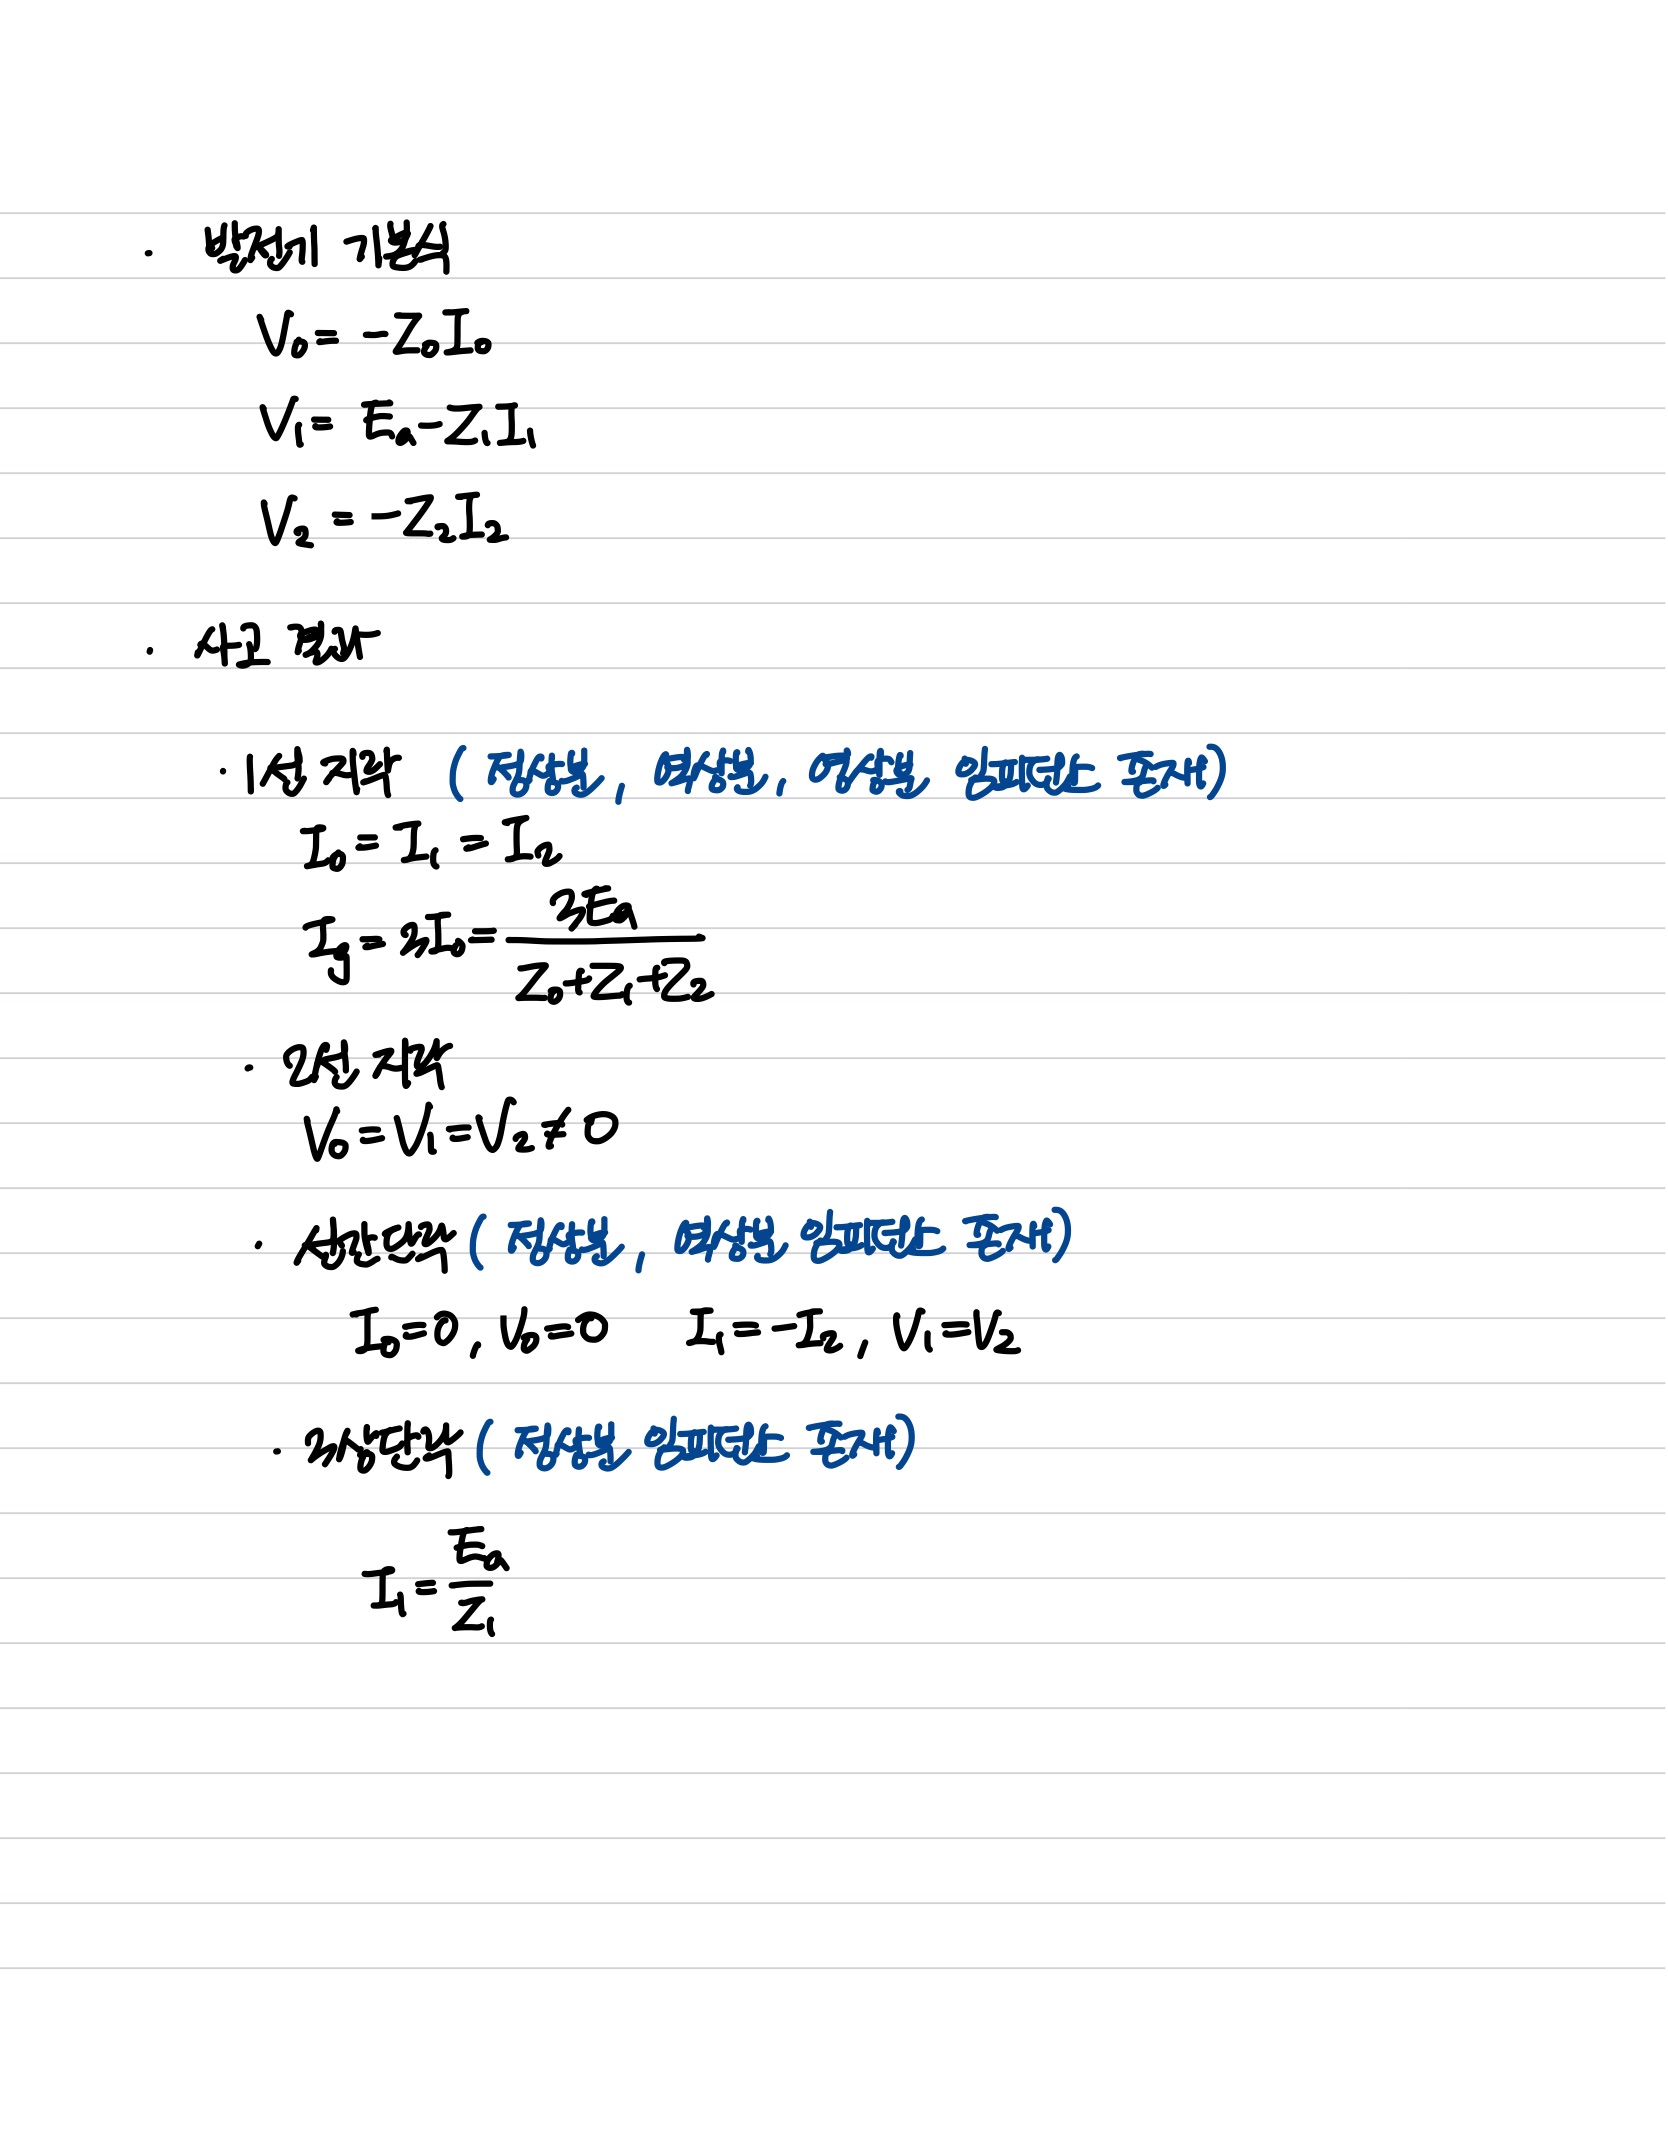 · 발전기 기본식
V₀ = -Z₀I₀
V₁ = Eₐ-Z₁I₁
V₂ = -Z₂I₂
· 사고 결과
· 1선 지락 ( 정상분, 역상분, 영상분 임피던스 존재)
I₀ = I₁ = I₂
I_g = 3I₀ = 3Eₐ / (Z₀+Z₁+Z₂)
· 2선 지락
V₀ = V₁ = V₂ ≠ 0
· 선간단락 ( 정상분, 역상분 임피던스 존재)
I₀=0, V₀=0 I₁=-I₂, V₁=V₂
· 3상단락 ( 정상분 임피던스 존재)
I₁ = Eₐ / Z₁